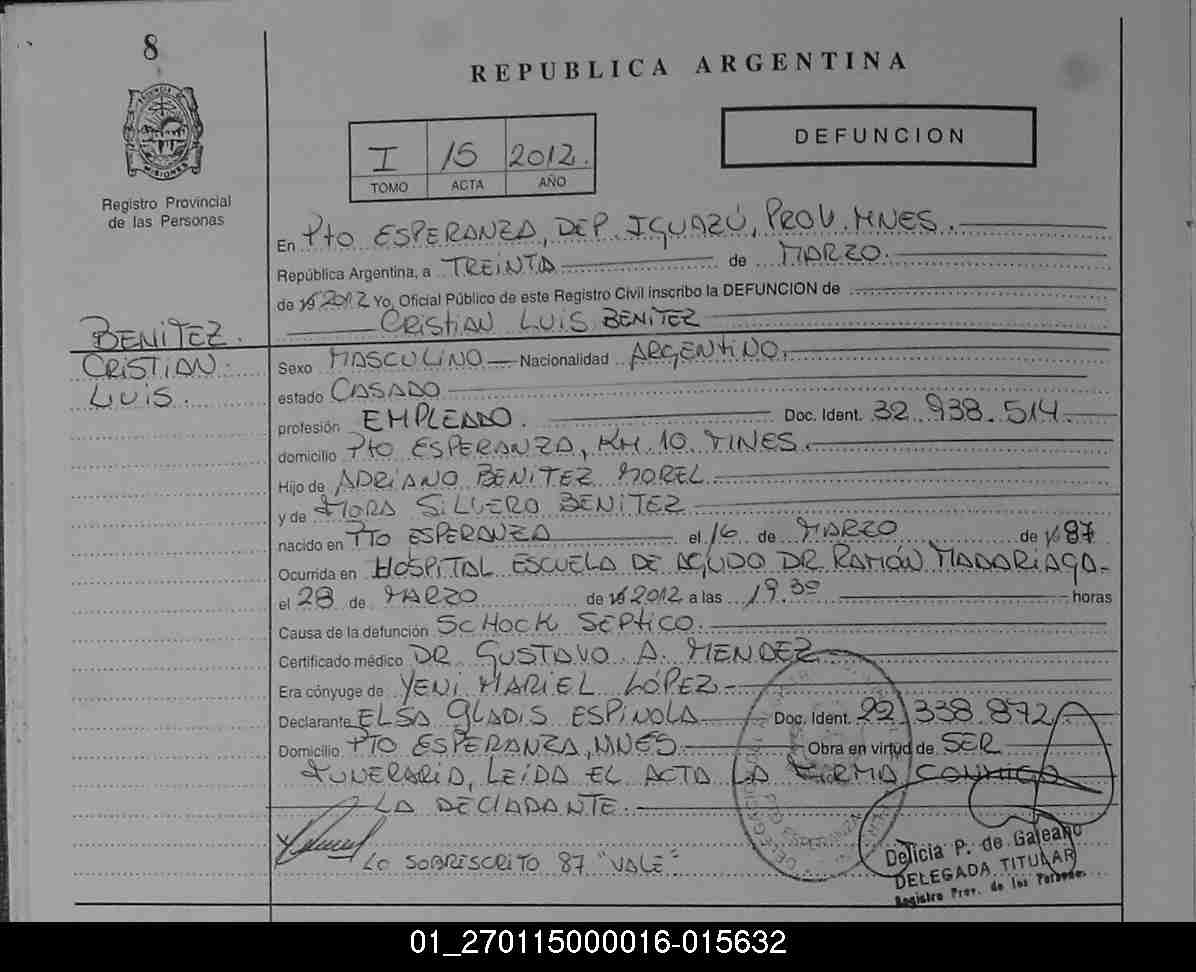 8
REPUBLICA ARGENTINA
I 15 2012.
TOMO ACTA AÑO
DEFUNCION
Registro Provincial
de las Personas
En Pto ESPERANZA, DEP. IGUAZÚ, PROV. MNES.
República Argentina, a TREINTA de MARZO.
de 2012 Yo, Oficial Público de este Registro Civil inscribo la DEFUNCION de
CRISTIAN LUIS BENITEZ
BENITEZ.
CRISTIAN
LUIS.
Sexo MASCULINO Nacionalidad ARGENTINO.
estado CASADO
profesión EMPLEADO. Doc. Ident. 32.938.514
domicilio Pto ESPERANZA, KM. 10 MNES.
Hijo de ADRIANO BENITEZ MOREL
y de SILVERO BENITEZ
nacido en PTO ESPERANZA el 16 de MARZO de 87
Ocurrida en HOSPITAL ESCUELA DE AGUDO DR. RAMÓN MADARIAGA
el 28 de MARZO de 2012 a las 19.30 horas
Causa de la defunción SCHOCK SEPTICO.
Certificado médico DR GUSTAVO A. MENDEZ
Era cónyuge de YENI MARIEL LÓPEZ
Declarante ELSA GLADIS ESPINOLA Doc. Ident. 22.338.872
Domicilio PTO ESPERANZA, MNES Obra en virtud de SER
FUNERARIA, LEÍDA EL ACTA LA FIRMA CONMIGO
LA DECLADANTE.
LO SOBRESCRITO 87 "VALE"
Delicia P. de Galeano
DELEGADA TITULAR
Registro Prov. de las Personas
01_270115000016-015632